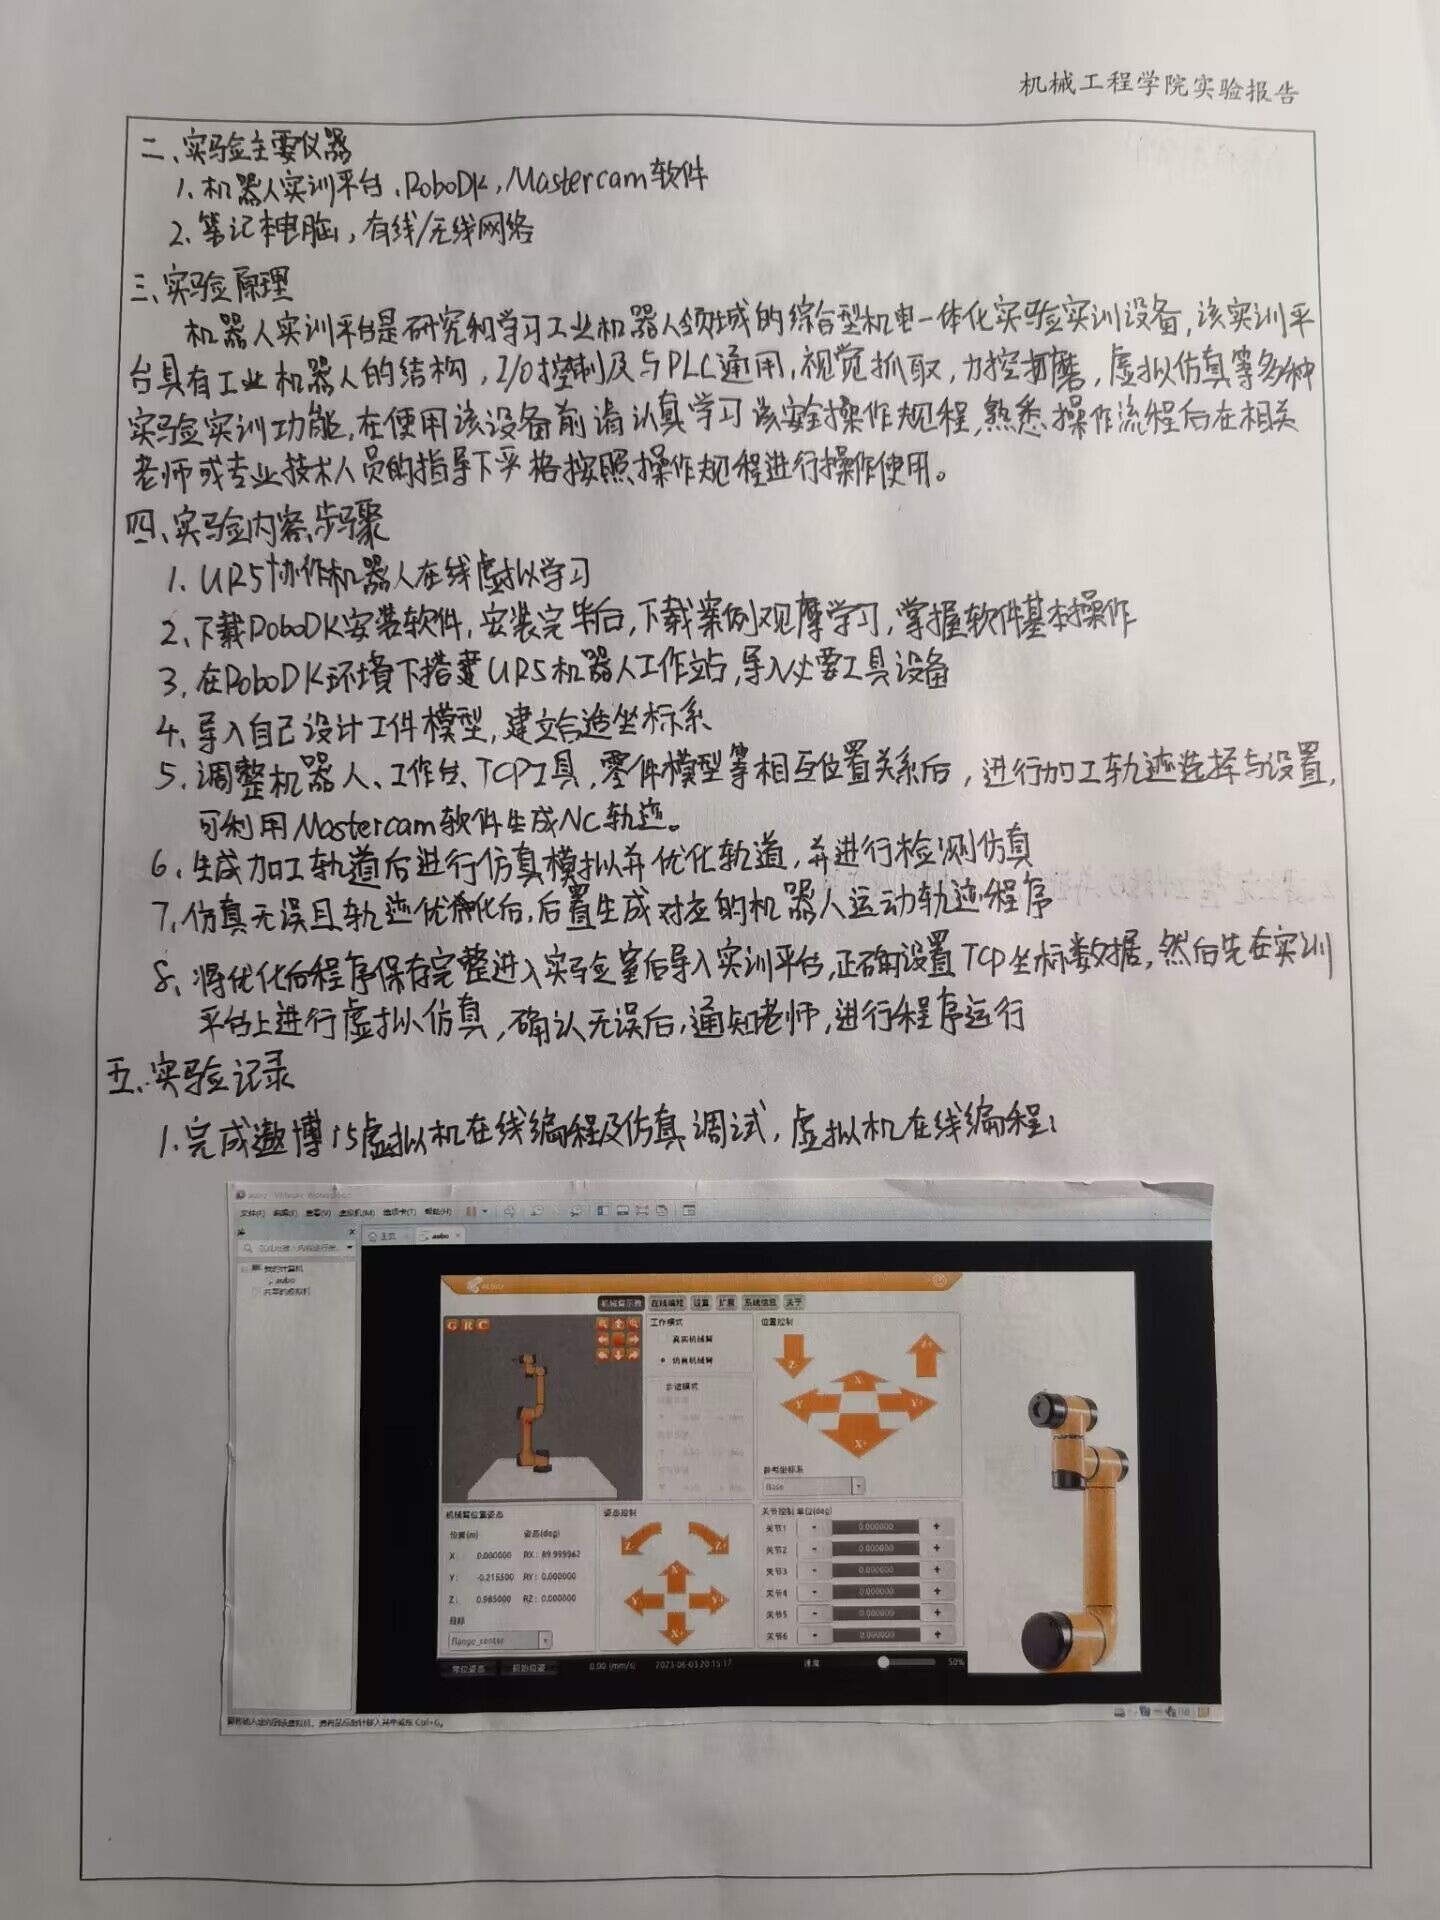 机械工程学院实验报告
二、实验主要仪器
1. 机器人实训平台、RoboDK、Mastercam软件
2. 笔记本电脑，有线/无线网络
三、实验原理
机器人实训平台是研究和学习工业机器人领域的综合型机电一体化实验实训设备，该实训平
台具有工业机器人的结构，I/O控制及与PLC通用，视觉抓取，力控打磨，虚拟仿真等多种
实验实训功能，在使用该设备前请认真学习该安全操作规程，熟悉操作流程后在相关
老师或专业技术人员的指导下严格按照操作规程进行操作使用。
四、实验内容、步骤
1. UR5协作机器人在线虚拟学习
2、下载RoboDK安装软件，安装完毕后，下载案例观摩学习，掌握软件基本操作
3、在RoboDK环境下搭建UR5机器人工作站，导入必要工具设备
4、导入自己设计工件模型，建立合适坐标系
5、调整机器人、工作台、TCP工具，零件模型等相互位置关系后，进行加工轨迹选择与设置，
可利用Mastercam软件生成NC轨迹。
6、生成加工轨道后进行仿真模拟并优化轨道，并进行检测仿真
7、仿真无误且轨迹优化后，后置生成对应的机器人运动轨迹程序
8、将优化后程序保存完整进入实验室后导入实训平台，正确设置TCP坐标数据，然后先在实训
平台上进行虚拟仿真，确认无误后，通知老师，进行程序运行
五、实验记录
1. 完成遨博i5虚拟机在线编程及仿真调试，虚拟机在线编程；
aubo - VMware Workstation
文件(F) 编辑(E) 查看(V) 虚拟机(M) 选项卡(T) 帮助(H)
主页 aubo
我的计算机
aubo
共享的虚拟机
机械臂示教 在线编程 设置 扩展 系统信息 关于
G R C
工作模式
真实机械臂
仿真机械臂
步进模式
位置控制
Z- Z+
X-
Y- Y+
X+
参考坐标系
Base
机械臂位置姿态
位置(m) 姿态(deg)
X: 0.000000 RX: 89.999962
Y: -0.215500 RY: 0.000000
Z: 0.985000 RZ: 0.000000
目标
flange_center
姿态控制
Z- Z+
X-
Y- Y+
X+
关节控制 单位(deg)
关节1 - 0.000000 +
关节2 - 0.000000 +
关节3 - 0.000000 +
关节4 - 0.000000 +
关节5 - 0.000000 +
关节6 - 0.000000 +
零位姿态 初始位姿 0.00 (mm/s) 2023-06-03 20:15:17 速度 50%